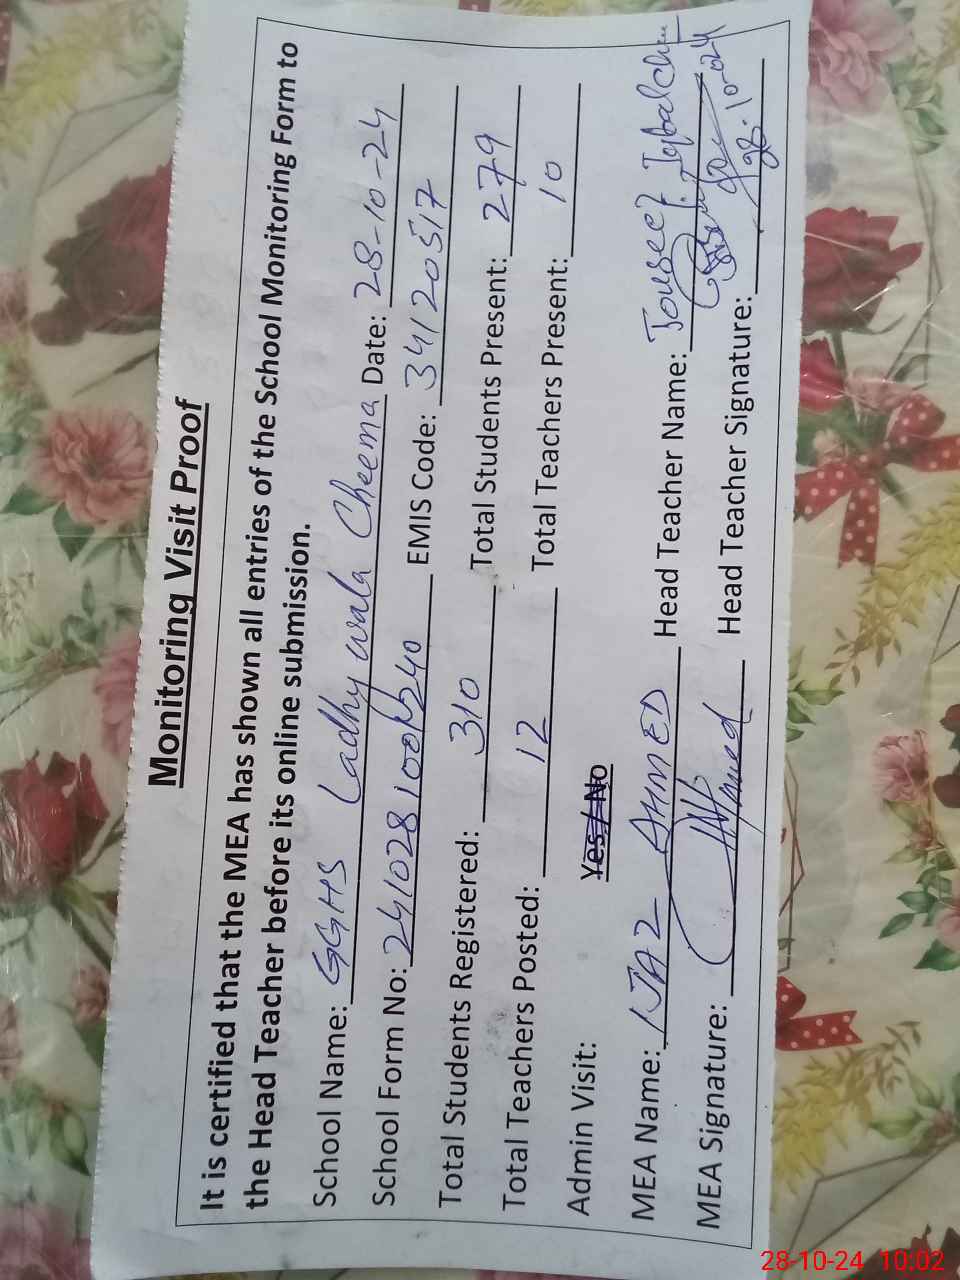 Monitoring Visit Proof
It is certified that the MEA has shown all entries of the School Monitoring Form to
the Head Teacher before its online submission.
School Name: GGHS Ladhy wala Cheema Date: 28-10-24
School Form No: EMIS Code: 34120517
Total Students Registered: 310 Total Students Present: 279
Total Teachers Posted: 12 Total Teachers Present: 10
Admin Visit: Yes / No
MEA Name: IJAZ AHMED Head Teacher Name: Iqbal
MEA Signature: Ahmed Head Teacher Signature:
28-10-024
28-10-24 10:02